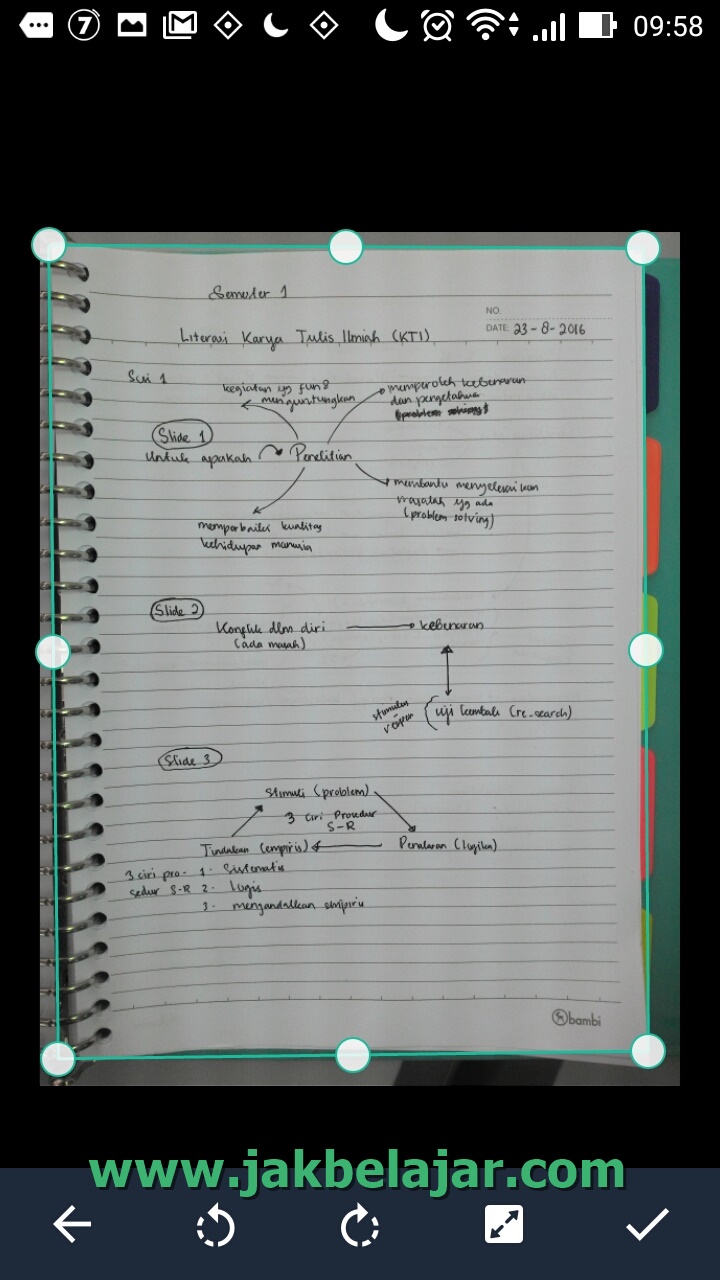 09:58
Semester 1
NO.
DATE: 23-8-2016
Literasi Karya Tulis Ilmiah (KTI)
Sesi 1
kegiatan yg fun &
menguntungkan
memperoleh kebenaran
dan pengetahuan
Slide 1
Untuk apakah
Penelitian
membantu menyelesaikan
masalah yg ada
(problem solving)
memperbaiki kualitas
kehidupan manusia
Slide 2
Konflik dlm diri
kebenaran
(ada masalah)
stimulus
respon
uji kembali (re-search)
Slide 3
Stimuli (problem)
3 Ciri Prosedur
S-R
Tindakan (empiris)
Penalaran (logika)
3 ciri pro- 1. Sistematis
sedur S-R 2. Logis
3. mengandalkan empiris
bambi
www.jakbelajar.com